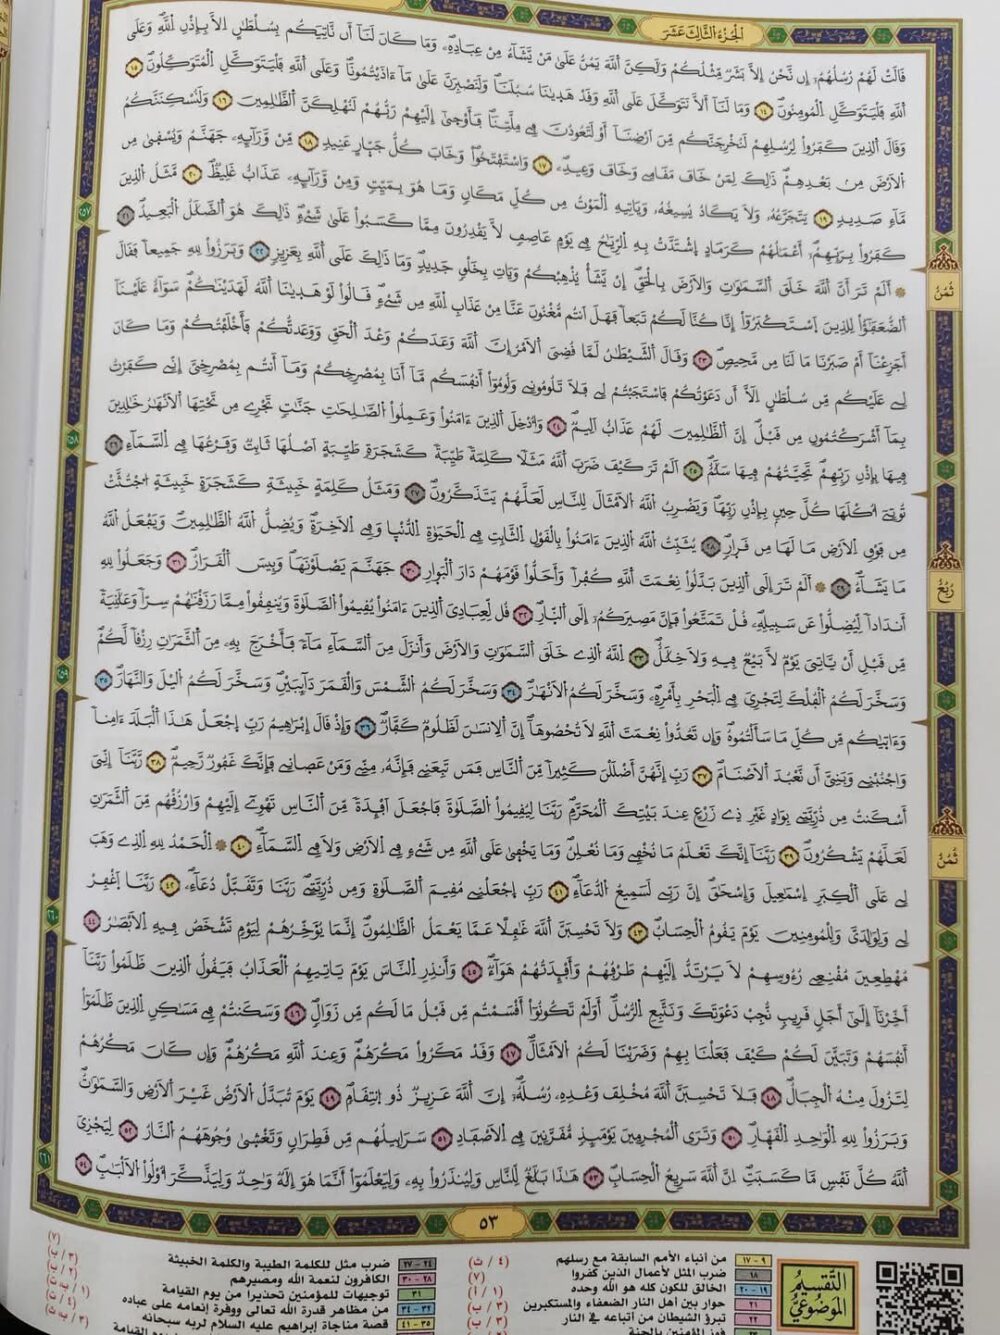 الجزء الثالث عشر
قَالَتْ لَهُمْ رُسُلُهُمُۥٓ إِن نَّحْنُ إِلَّا بَشَرٌ مِّثْلُكُمْ وَلَٰكِنَّ اَللَّهَ يَمُنُّ عَلَىٰ مَنْ يَّشَآءُ مِنْ عِبَادِهِۦ وَمَا كَانَ لَنَآ أَن نَّاتِيَكُم بِسُلْطَٰنٍ اِلَّا بِإِذْنِ اِللَّهِ وَعَلَى
اَللَّهِ فَلْيَتَوَكَّلِ اِلْمُومِنُونَ ١٤ وَمَا لَنَآ أَلَّا نَتَوَكَّلَ عَلَى اَللَّهِ وَقَدْ هَدٰىنَا سُبُلَنَا وَلَنَصْبِرَنَّ عَلَىٰ مَآ ءَاذَيْتُمُونَا وَعَلَى اَللَّهِ فَلْيَتَوَكَّلِ اِلْمُتَوَكِّلُونَ ١٥
وَقَالَ اَلذِينَ كَفَرُواْ لِرُسُلِهِمْ لَنُخْرِجَنَّكُم مِّنَ اَرْضِنَآ أَوْ لَتَعُودُنَّ فِے مِلَّتِنَا فَأَوْحَىٰٓ إِلَيْهِمْ رَبُّهُمْ لَنُهْلِكَنَّ اَلظَّٰلِمِينَ ١٦ وَلَنُسْكِنَنَّكُمُ
اُلَارْضَ مِنۢ بَعْدِهِمْ ذَٰلِكَ لِمَنْ خَافَ مَقَامِے وَخَافَ وَعِيدِۦ ١٧ وَاسْتَفْتَحُواْ وَخَابَ كُلُّ جَبَّارٍ عَنِيدٍ ١٨ مِّنْ وَّرَآئِهِۦ جَهَنَّمُ وَيُسْقَىٰ مِن
مَّآءٍ صَدِيدٍ ١٩ يَتَجَرَّعُهُۥ وَلَا يَكَادُ يُسِيغُهُۥ وَيَاتِيهِ اِلْمَوْتُ مِن كُلِّ مَكَانٍ وَمَا هُوَ بِمَيِّتٍ وَمِنْ وَّرَآئِهِۦ عَذَابٌ غَلِيظٌ ٢٠ مَّثَلُ اُلذِينَ
كَفَرُواْ بِرَبِّهِمُۥٓ أَعْمَٰلُهُمْ كَرَمَادٍ اِشْتَدَّتْ بِهِ اِلرِّيَٰحُ فِے يَوْمٍ عَاصِفٍ لَّا يَقْدِرُونَ مِمَّا كَسَبُواْ عَلَىٰ شَےْءٍ ذَٰلِكَ هُوَ اَلضَّلَٰلُ اُلْبَعِيدُ ٢١
۞ أَلَمْ تَرَ أَنَّ اَللَّهَ خَلَقَ اَلسَّمَٰوَٰتِ وَالَارْضَ بِالْحَقِّ إِنْ يَّشَأْ يُذْهِبْكُمْ وَيَاتِ بِخَلْقٍ جَدِيدٍ وَمَا ذَٰلِكَ عَلَى اَللَّهِ بِعَزِيزٍ ٢٢ وَبَرَزُواْ لِلهِ جَمِيعاً فَقَالَ
ثُمُنُ
اَلضُّعَفَٰٓؤُاْ لِلذِينَ اَسْتَكْبَرُوٓاْ إِنَّا كُنَّا لَكُمْ تَبَعاً فَهَلَ اَنتُم مُّغْنُونَ عَنَّا مِنْ عَذَابِ اِللَّهِ مِن شَےْءٍ قَالُواْ لَوْ هَدٰىنَا اَللَّهُ لَهَدَيْنَٰكُمْ سَوَآءٌ عَلَيْنَآ
أَجَزِعْنَآ أَمْ صَبَرْنَا مَا لَنَا مِن مَّحِيصٍ ٢٣ وَقَالَ اَلشَّيْطَٰنُ لَمَّا قُضِيَ اَلَامْرُ إِنَّ اَللَّهَ وَعَدَكُمْ وَعْدَ اَلْحَقِّ وَوَعَدتُّكُمْ فَأَخْلَفْتُكُمْ وَمَا كَانَ
لِے عَلَيْكُم مِّن سُلْطَٰنٍ اِلَّآ أَن دَعَوْتُكُمْ فَاسْتَجَبْتُمْ لِے فَلَا تَلُومُونِے وَلُومُوٓاْ أَنفُسَكُم مَّآ أَنَا بِمُصْرِخِكُمْ وَمَآ أَنتُم بِمُصْرِخِيَّ إِنِّے كَفَرْتُ
بِمَآ أَشْرَكْتُمُونِ مِن قَبْلُ إِنَّ اَلظَّٰلِمِينَ لَهُمْ عَذَابٌ اَلِيمٌ ٢٤ وَأُدْخِلَ اَلذِينَ ءَامَنُواْ وَعَمِلُواْ اُلصَّٰلِحَٰتِ جَنَّٰتٍ تَجْرِے مِن تَحْتِهَا اَلَانْهَٰرُ خَٰلِدِينَ
فِيهَا بِإِذْنِ رَبِّهِمْ تَحِيَّتُهُمْ فِيهَا سَلَٰمٌ ٢٥ اَلَمْ تَرَ كَيْفَ ضَرَبَ اَللَّهُ مَثَلًا كَلِمَةً طَيِّبَةً كَشَجَرَةٍ طَيِّبَةٍ اَصْلُهَا ثَابِتٌ وَفَرْعُهَا فِے اِلسَّمَآءِ ٢٦
تُوتِےٓ أُكْلَهَا كُلَّ حِينٍۢ بِإِذْنِ رَبِّهَا وَيَضْرِبُ اُللَّهُ اُلَامْثَالَ لِلنَّاسِ لَعَلَّهُمْ يَتَذَكَّرُونَ ٢٧ وَمَثَلُ كَلِمَةٍ خَبِيثَةٍ كَشَجَرَةٍ خَبِيثَةٍ اُجْتُثَّتْ
مِن فَوْقِ اِلَارْضِ مَا لَهَا مِن قَرَارٍ ٢٨ يُثَبِّتُ اُللَّهُ اُلذِينَ ءَامَنُواْ بِالْقَوْلِ اِلثَّابِتِ فِے اِلْحَيَوٰةِ اِلدُّنْيا وَفِے اِلَاخِرَةِ وَيُضِلُّ اُللَّهُ اُلظَّٰلِمِينَ وَيَفْعَلُ اُللَّهُ
مَا يَشَآءُ ٢٩ ۞ أَلَمْ تَرَ إِلَى اَلذِينَ بَدَّلُواْ نِعْمَتَ اَللَّهِ كُفْراً وَأَحَلُّواْ قَوْمَهُمْ دَارَ اَلْبَوارِ ٣٠ جَهَنَّمَ يَصْلَوْنَهَا وَبِيسَ اَلْقَرَارُ ٣١ وَجَعَلُواْ لِلهِ
رُبُعُ
أَندَاداً لِّيُضِلُّواْ عَن سَبِيلِهِۦ قُلْ تَمَتَّعُواْ فَإِنَّ مَصِيرَكُمُۥٓ إِلَى اَلنَّارِ ٣٢ قُل لِّعِبَادِيَ اَلذِينَ ءَامَنُواْ يُقِيمُواْ اُلصَّلَوٰةَ وَيُنفِقُواْ مِمَّا رَزَقْنَٰهُمْ سِرّاً وَعَلَٰنِيَةً
مِّن قَبْلِ أَنْ يَّاتِيَ يَوْمٌ لَّا بَيْعٌ فِيهِ وَلَا خِلَٰلٌ ٣٣ اَللَّهُ اُلذِے خَلَقَ اَلسَّمَٰوَٰتِ وَالَارْضَ وَأَنزَلَ مِنَ اَلسَّمَآءِ مَآءً فَأَخْرَجَ بِهِۦ مِنَ اَلثَّمَرَٰتِ رِزْقاً لَّكُمْ
وَسَخَّرَ لَكُمُ اُلْفُلْكَ لِتَجْرِيَ فِے اِلْبَحْرِ بِأَمْرِهِۦ وَسَخَّرَ لَكُمُ اُلَانْهَٰرَ ٣٤ وَسَخَّرَ لَكُمُ اُلشَّمْسَ وَالْقَمَرَ دَآئِبَيْنِ وَسَخَّرَ لَكُمُ اُليْلَ وَالنَّهَارَ ٣٥
وَءَاتٰىكُم مِّن كُلِّ مَا سَأَلْتُمُوهُ وَإِن تَعُدُّواْ نِعْمَتَ اَللَّهِ لَا تُحْصُوهَآ إِنَّ اَلِانسَٰنَ لَظَلُومٌ كَفَّارٌ ٣٦ وَإِذْ قَالَ إِبْرَٰهِيمُ رَبِّ اِجْعَلْ هَٰذَا اَلْبَلَدَ ءَامِناً
وَاجْنُبْنِے وَبَنِيَّ أَن نَّعْبُدَ اَلَاصْنَامَ ٣٧ رَبِّ إِنَّهُنَّ أَضْلَلْنَ كَثِيراً مِّنَ اَلنَّاسِ فَمَن تَبِعَنِے فَإِنَّهُۥ مِنِّے وَمَنْ عَصَانِے فَإِنَّكَ غَفُورٌ رَّحِيمٌ ٣٨ رَّبَّنَآ إِنِّيَ
أَسْكَنتُ مِن ذُرِّيَّتِے بِوَادٍ غَيْرِ ذِے زَرْعٍ عِندَ بَيْتِكَ اَلْمُحَرَّمِ رَبَّنَا لِيُقِيمُواْ اُلصَّلَوٰةَ فَاجْعَلَ اَفْـِٔدَةً مِّنَ اَلنَّاسِ تَهْوِےٓ إِلَيْهِمْ وَارْزُقْهُم مِّنَ اَلثَّمَرَٰتِ
لَعَلَّهُمْ يَشْكُرُونَ ٣٩ رَبَّنَآ إِنَّكَ تَعْلَمُ مَا نُخْفِے وَمَا نُعْلِنُ وَمَا يَخْفَىٰ عَلَى اَللَّهِ مِن شَےْءٍ فِے اِلَارْضِ وَلَا فِے اِلسَّمَآءِ ٤٠ ۞ اِلْحَمْدُ لِلهِ اِلذِے وَهَبَ
ثُمُنُ
لِے عَلَى اَلْكِبَرِ إِسْمَٰعِيلَ وَإِسْحَٰقَ إِنَّ رَبِّے لَسَمِيعُ اُلدُّعَآءِ ٤١ رَبِّ اِجْعَلْنِے مُقِيمَ اَلصَّلَوٰةِ وَمِن ذُرِّيَّتِے رَبَّنَا وَتَقَبَّلْ دُعَآءِۦ ٤٢ رَبَّنَا اَغْفِرْ
لِے وَلِوَٰلِدَيَّ وَلِلْمُومِنِينَ يَوْمَ يَقُومُ اُلْحِسَابُ ٤٣ وَلَا تَحْسِبَنَّ اَللَّهَ غَٰفِلًا عَمَّا يَعْمَلُ اُلظَّٰلِمُونَ إِنَّمَا يُؤَخِّرُهُمْ لِيَوْمٍ تَشْخَصُ فِيهِ اِلَابْصَٰرُ ٤٤
مُهْطِعِينَ مُقْنِعِے رُءُوسِهِمْ لَا يَرْتَدُّ إِلَيْهِمْ طَرْفُهُمْ وَأَفْـِٔدَتُهُمْ هَوَآءٌ ٤٥ وَأَنذِرِ اِلنَّاسَ يَوْمَ يَاتِيهِمُ اُلْعَذَابُ فَيَقُولُ اُلذِينَ ظَلَمُواْ رَبَّنَآ
أَخِّرْنَآ إِلَىٰٓ أَجَلٍ قَرِيبٍ نُّجِبْ دَعْوَتَكَ وَنَتَّبِعِ اِلرُّسُلَ أَوَلَمْ تَكُونُوٓاْ أَقْسَمْتُم مِّن قَبْلُ مَا لَكُم مِّن زَوَالٍ ٤٦ وَسَكَنتُمْ فِے مَسَٰكِنِ اِلذِينَ ظَلَمُوٓاْ
أَنفُسَهُمْ وَتَبَيَّنَ لَكُمْ كَيْفَ فَعَلْنَا بِهِمْ وَضَرَبْنَا لَكُمُ اُلَامْثَالَ ٤٧ وَقَدْ مَكَرُواْ مَكْرَهُمْ وَعِندَ اَللَّهِ مَكْرُهُمْ وَإِن كَانَ مَكْرُهُمْ
لِتَزُولَ مِنْهُ اُلْجِبَالُ ٤٨ فَلَا تَحْسِبَنَّ اَللَّهَ مُخْلِفَ وَعْدِهِۦ رُسُلَهُۥٓ إِنَّ اَللَّهَ عَزِيزٌ ذُو اُنتِقَامٍ ٤٩ يَوْمَ تُبَدَّلُ اُلَارْضُ غَيْرَ اَلَارْضِ وَالسَّمَٰوَٰتُ
وَبَرَزُواْ لِلهِ اِلْوَٰحِدِ اِلْقَهَّارِ ٥٠ وَتَرَى اَلْمُجْرِمِينَ يَوْمَئِذٍ مُّقَرَّنِينَ فِے اِلَاصْفَادِ ٥١ سَرَابِيلُهُم مِّن قَطِرَانٍ وَتَغْشَىٰ وُجُوهَهُمُ اُلنَّارُ ٥٢ لِيَجْزِيَ
اَللَّهُ كُلَّ نَفْسٍ مَّا كَسَبَتِ اِنَّ اَللَّهَ سَرِيعُ اُلْحِسَابِ ٥٣ هَٰذَا بَلَٰغٌ لِّلنَّاسِ وَلِيُنذَرُواْ بِهِۦ وَلِيَعْلَمُوٓاْ أَنَّمَا هُوَ إِلَٰهٌ وَٰحِدٌ وَلِيَذَّكَّرَ أُوْلُواْ اُلَالْبَٰبِ ٥٤
٢٥٧
٢٥٨
٢٥٩
٢٦٠
٢٦١
٥٣
التقسيم الموضوعي
٩ - ١٧ من أنباء الأمم السابقة مع رسلهم (٤ / ث)
١٨ ضرب المثل لأعمال الذين كفروا (٧)
١٩ - ٢٠ الخالق للكون كله هو الله وحده (١ / أ)
٢١ حوار بين أهل النار الضعفاء والمستكبرين (٣ / ب)
٢٢ تبرؤ الشيطان من أتباعه في النار (٣ / ب)
فوز المؤمنين بالجنة
٢٤ - ٢٧ ضرب مثل للكلمة الطيبة والكلمة الخبيثة (٧)
٢٨ - ٣٠ الكافرون لنعمة الله ومصيرهم (٣ / ب)
٣١ توجيهات للمؤمنين تحذيرا من يوم القيامة
٣٢ - ٣٤ من مظاهر قدرة الله تعالى ووفرة إنعامه على عباده
٣٥ - ٤١ قصة مناجاة إبراهيم عليه السلام لربه سبحانه